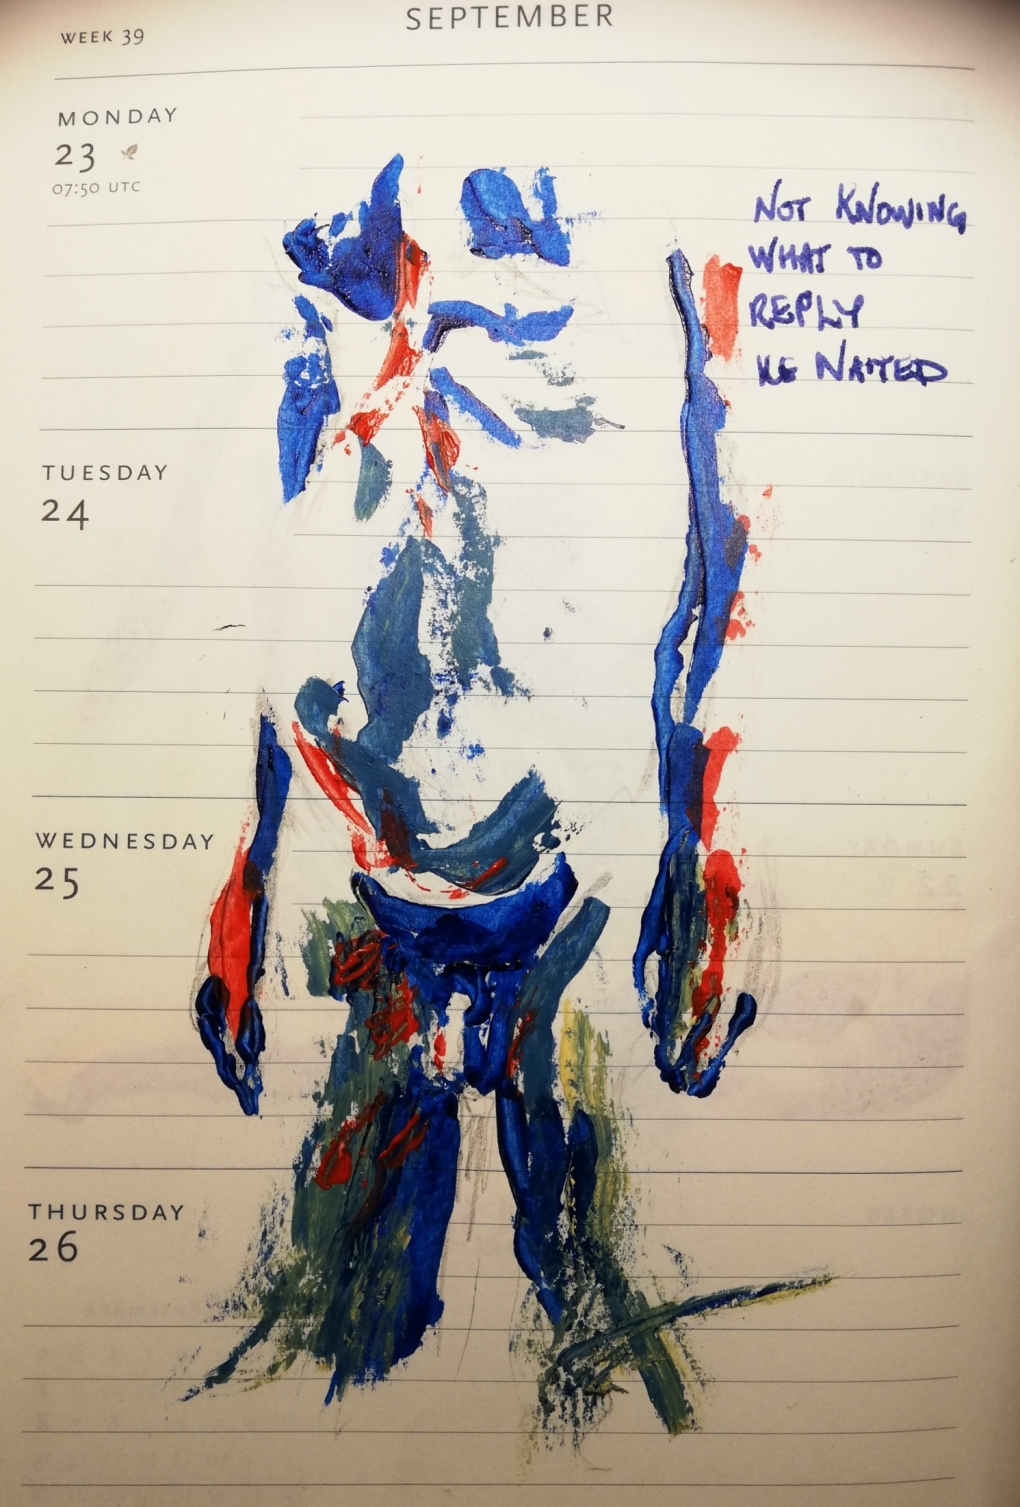 SEPTEMBER
WEEK 39
MONDAY
23
07:50 UTC
NOT KNOWING
WHAT TO
REPLY
HE WAITED
TUESDAY
24
WEDNESDAY
25
THURSDAY
26